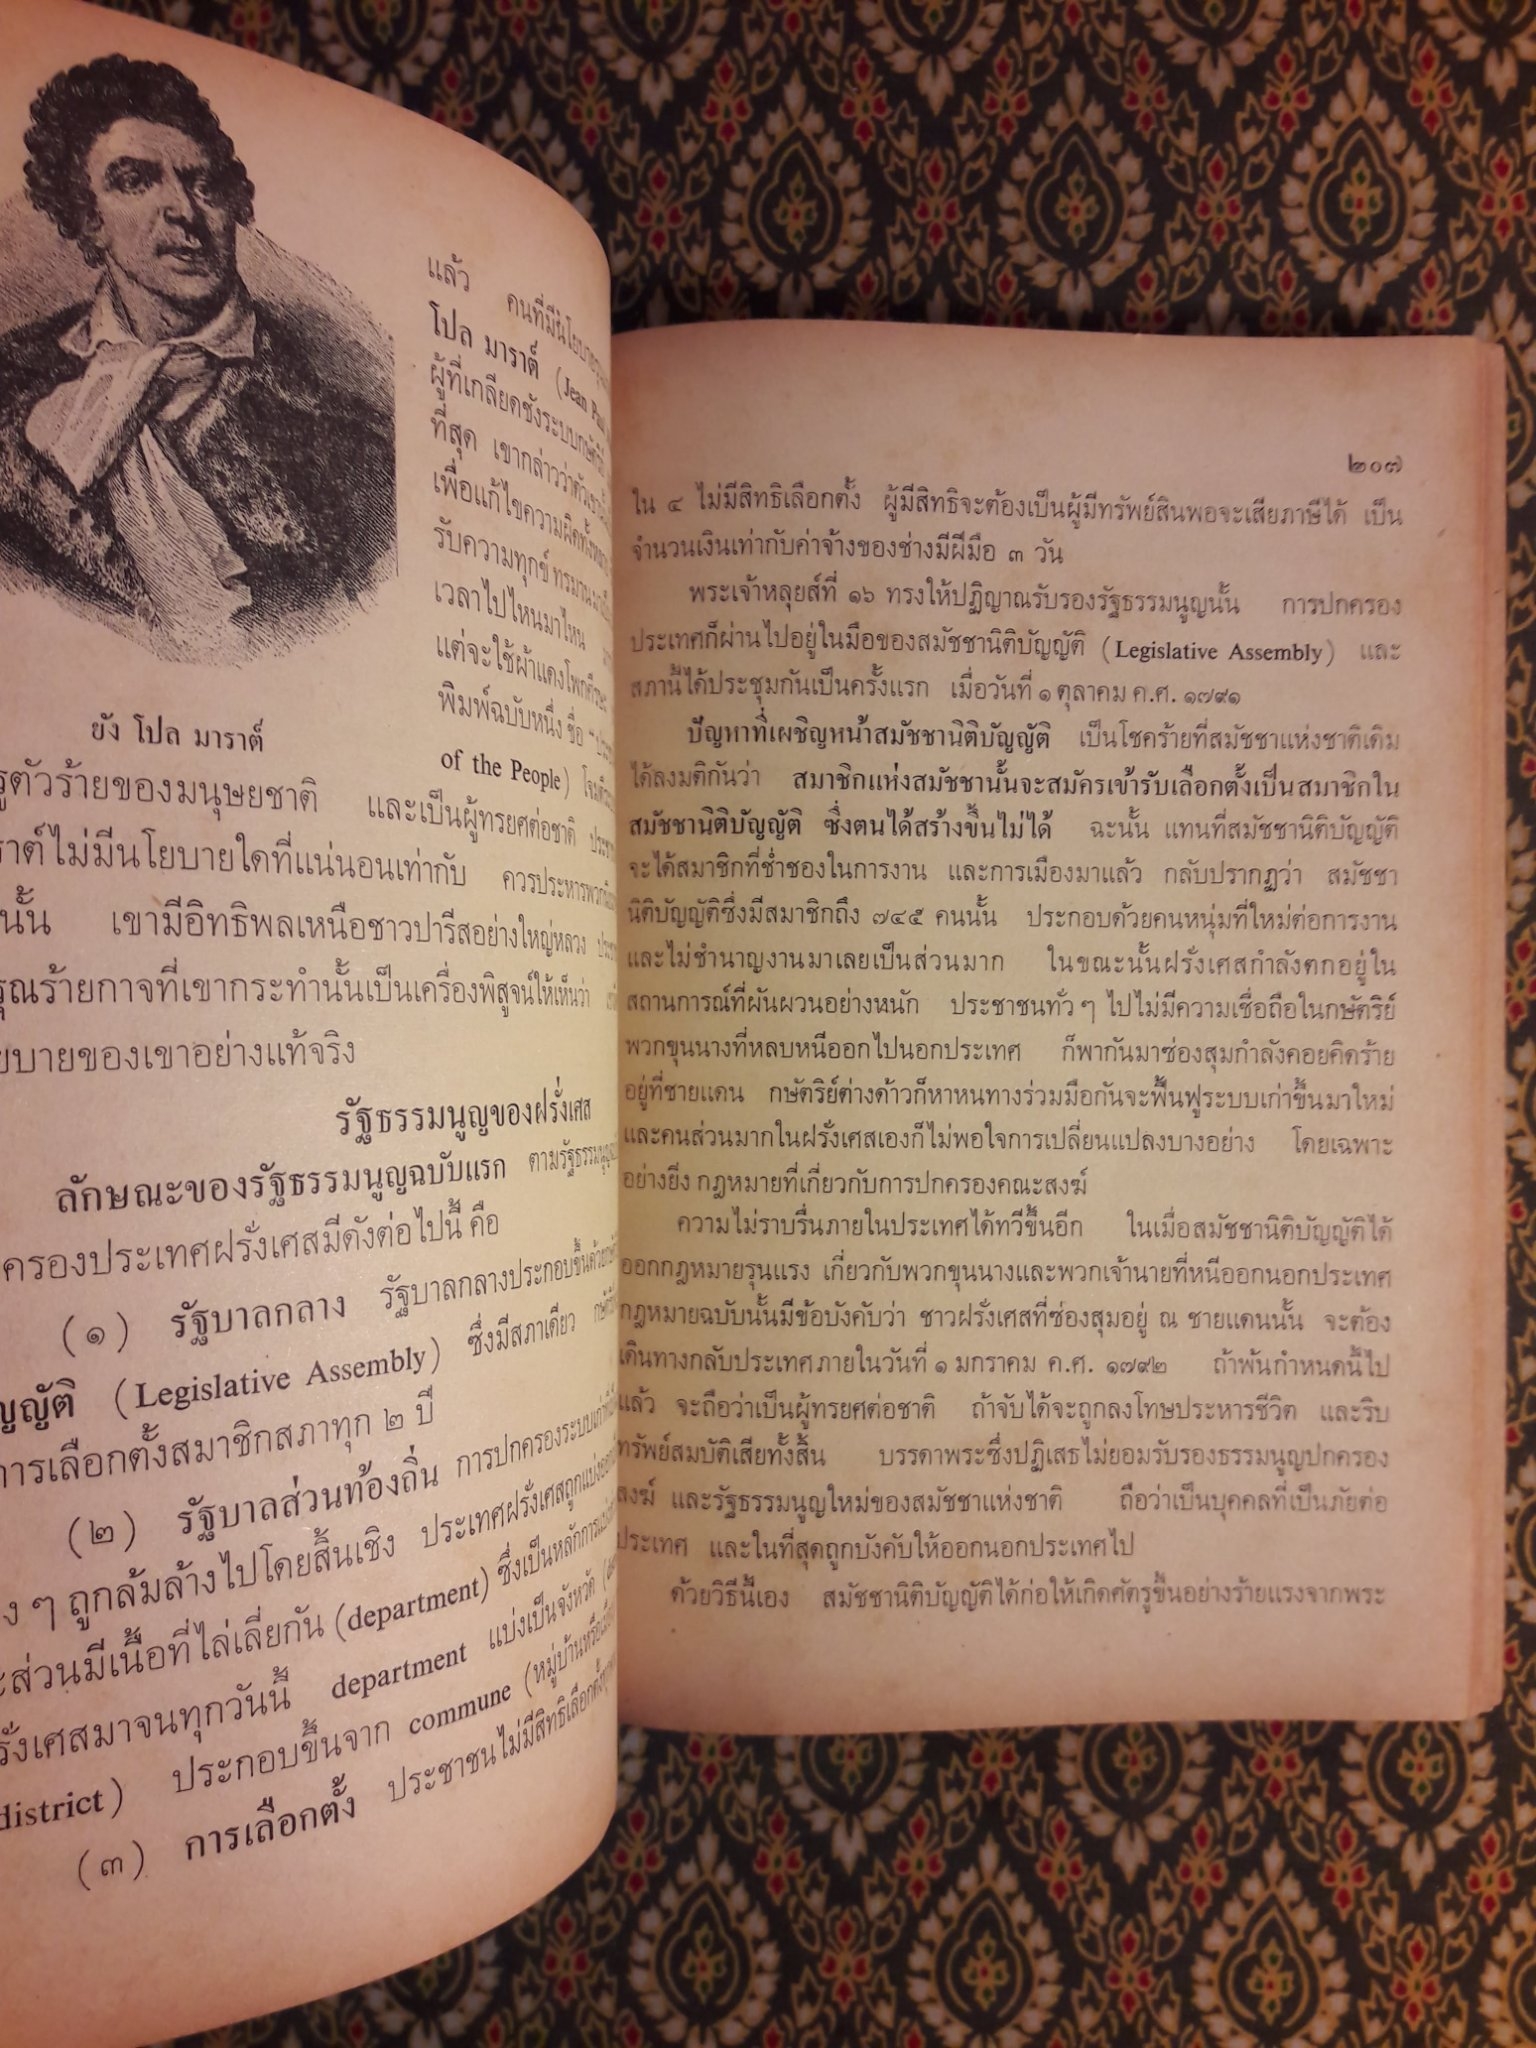 แล้ว คนที่มีนโยบาย
โปล มาราต์ (Jean Paul
ผู้ที่เกลียดชังระบบกษัตริย์
ที่สุด เขากล่าวว่าตัวเขานั้น
เพื่อแก้ไขความผิดทั้งหลาย
รับความทุกข์ ทรมานมา
เวลาไปไหนมาไหน
แต่จะใช้ผ้าแดงโพกศีรษะ
พิมพ์ฉบับหนึ่ง ชื่อ
of the People) โจมตี
ยัง โปล มาราต์
รูตัวร้ายของมนุษยชาติ และเป็นผู้ทรยศต่อชาติ
ราต์ไม่มีนโยบายใดที่แน่นอนเท่ากับ ควรประหารพวก
นั้น เขามีอิทธิพลเหนือชาวปารีสอย่างใหญ่หลวง
รุณร้ายกาจที่เขากระทำนั้นเป็นเครื่องพิสูจน์ให้เห็นว่า
ยบายของเขาอย่างแท้จริง
รัฐธรรมนูญของฝรั่งเศส
ลักษณะของรัฐธรรมนูญฉบับแรก ตามรัฐธรรมนูญ
ครองประเทศฝรั่งเศสมีดังต่อไปนี้ คือ
(๑) รัฐบาลกลาง รัฐบาลกลางประกอบขึ้นด้วย
ญญัติ (Legislative Assembly) ซึ่งมีสภาเดียว
การเลือกตั้งสมาชิกสภาทุก ๒ ปี
(๒) รัฐบาลส่วนท้องถิ่น การปกครองระบบเก่า
ง ๆ ถูกล้มล้างไปโดยสิ้นเชิง ประเทศฝรั่งเศสถูกแบ่งออก
ะส่วนมีเนื้อที่ไล่เลี่ยกัน (department) ซึ่งเป็นหลักการ
รั่งเศสมาจนทุกวันนี้ department แบ่งเป็นจังหวัด
district) ประกอบขึ้นจาก commune (หมู่บ้านหรือเมือง
(๓) การเลือกตั้ง ประชาชนไม่มีสิทธิเลือกตั้งทุก
๒๐๗
ใน ๔ ไม่มีสิทธิเลือกตั้ง ผู้มีสิทธิจะต้องเป็นผู้มีทรัพย์สินพอจะเสียภาษีได้ เป็น
จำนวนเงินเท่ากับค่าจ้างของช่างมีฝีมือ ๓ วัน
พระเจ้าหลุยส์ที่ ๑๖ ทรงให้ปฏิญาณรับรองรัฐธรรมนูญนั้น การปกครอง
ประเทศก็ผ่านไปอยู่ในมือของสมัชชานิติบัญญัติ (Legislative Assembly) และ
สภานี้ได้ประชุมกันเป็นครั้งแรก เมื่อวันที่ ๑ ตุลาคม ค.ศ. ๑๗๙๑
ปัญหาที่เผชิญหน้าสมัชชานิติบัญญัติ เป็นโชคร้ายที่สมัชชาแห่งชาติเดิม
ได้ลงมติกันว่า สมาชิกแห่งสมัชชานั้นจะสมัครเข้ารับเลือกตั้งเป็นสมาชิกใน
สมัชชานิติบัญญัติ ซึ่งตนได้สร้างขึ้นไม่ได้ ฉะนั้น แทนที่สมัชชานิติบัญญัติ
จะได้สมาชิกที่ช่ำชองในการงาน และการเมืองมาแล้ว กลับปรากฏว่า สมัชชา
นิติบัญญัติซึ่งมีสมาชิกถึง ๗๔๕ คนนั้น ประกอบด้วยคนหนุ่มที่ใหม่ต่อการงาน
และไม่ชำนาญงานมาเลยเป็นส่วนมาก ในขณะนั้นฝรั่งเศสกำลังตกอยู่ใน
สถานการณ์ที่ผันผวนอย่างหนัก ประชาชนทั่ว ๆ ไปไม่มีความเชื่อถือในกษัตริย์
พวกขุนนางที่หลบหนีออกไปนอกประเทศ ก็พากันมาซ่องสุมกำลังคอยคิดร้าย
อยู่ที่ชายแดน กษัตริย์ต่างด้าวก็หาหนทางร่วมมือกันจะฟื้นฟูระบบเก่าขึ้นมาใหม่
และคนส่วนมากในฝรั่งเศสเองก็ไม่พอใจการเปลี่ยนแปลงบางอย่าง โดยเฉพาะ
อย่างยิ่ง กฎหมายที่เกี่ยวกับการปกครองคณะสงฆ์
ความไม่ราบรื่นภายในประเทศได้ทวีขึ้นอีก ในเมื่อสมัชชานิติบัญญัติได้
ออกกฎหมายรุนแรง เกี่ยวกับพวกขุนนางและพวกเจ้านายที่หนีออกนอกประเทศ
กฎหมายฉบับนั้นมีข้อบังคับว่า ชาวฝรั่งเศสที่ซ่องสุมอยู่ ณ ชายแดนนั้น จะต้อง
เดินทางกลับประเทศภายในวันที่ ๑ มกราคม ค.ศ. ๑๗๙๒ ถ้าพ้นกำหนดนี้ไป
แล้ว จะถือว่าเป็นผู้ทรยศต่อชาติ ถ้าจับได้จะถูกลงโทษประหารชีวิต และริบ
ทรัพย์สมบัติเสียทั้งสิ้น บรรดาพระซึ่งปฏิเสธไม่ยอมรับรองธรรมนูญปกครอง
สงฆ์ และรัฐธรรมนูญใหม่ของสมัชชาแห่งชาติ ถือว่าเป็นบุคคลที่เป็นภัยต่อ
ประเทศ และในที่สุดถูกบังคับให้ออกนอกประเทศไป
ด้วยวิธีนี้เอง สมัชชานิติบัญญัติได้ก่อให้เกิดศัตรูขึ้นอย่างร้ายแรงจากพระ